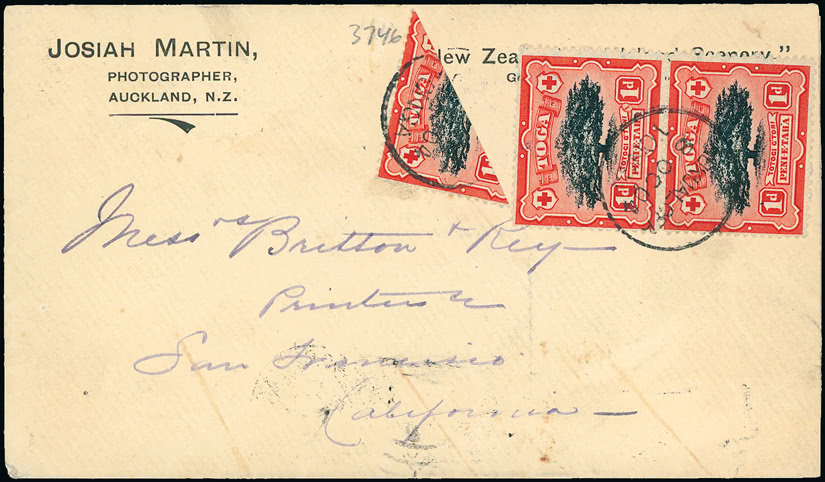 JOSIAH MARTIN,
PHOTOGRAPHER,
AUCKLAND, N.Z.
3746
New Zea Scenery."
TOGA
1D
TOGA
1D
1D
OTOGI G'TOFI
PENI·E·TAHA
TOGA
1D
1D
OTOGI G'TOFI
PENI·E·TAHA
8 OC
Messrs Britton & Rey
Printers
San Francisco
California